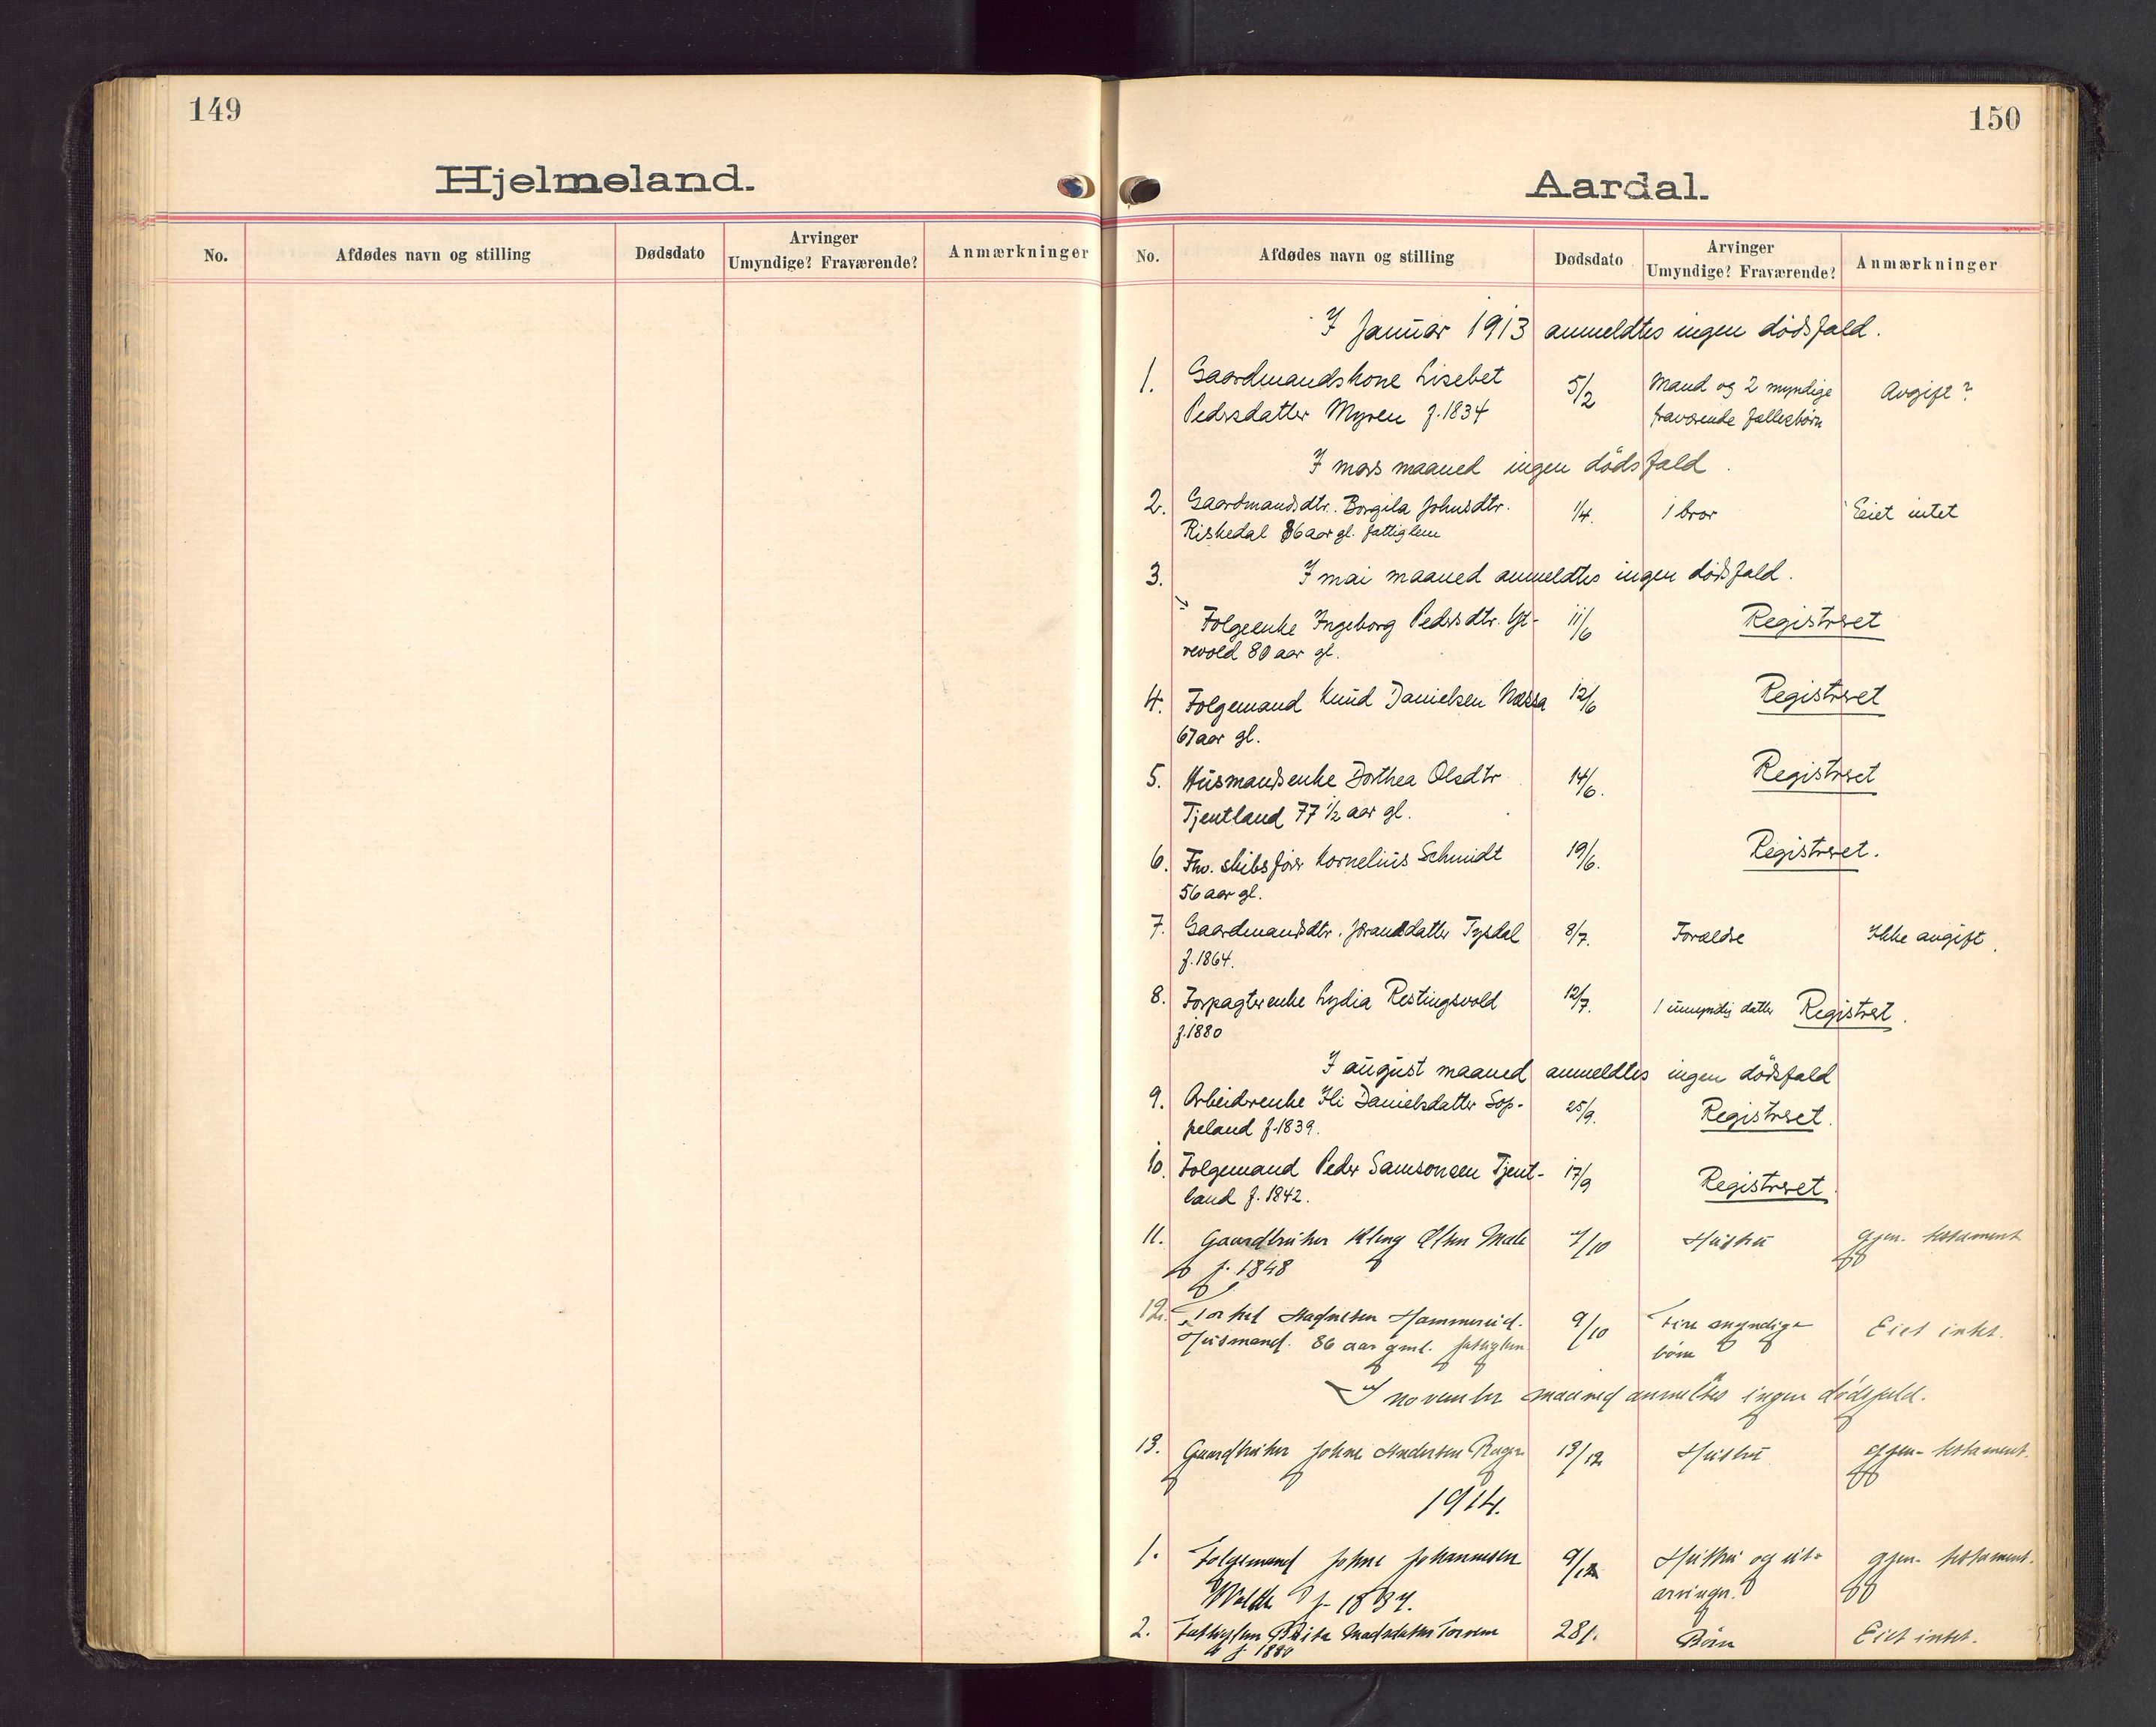 149
Hjelmeland.
No. Afdødes navn og stilling Dødsdato Arvinger Umyndige? Fraværende? Anmærkninger
150
Aardal.
No. Afdødes navn og stilling Dødsdato Arvinger Umyndige? Fraværende? Anmærkninger
I Januar 1913 anmeldtes ingen dödsfald.
1. Gaardmandskone Lisebet 5/2 Mand og 2 myndige Avgift?
Pedersdatter Myren f. 1834 fraværende fællesbörn
I mars maaned ingen dödsfald.
2. Gaardmandsdtr. Borgila Johnsdtr. 1/4. 1 bror Eiet intet
Riskedal 86 aar gl. fattiglem
3. I mai maaned anmeldtes ingen dödsfald.
Folgeenke Ingeborg Pedersdtr. 11/6 Registreret
revold 80 aar gl.
4. Folgemand Knud Danielsen Nessa 12/6 Registreret
67 aar gl.
5. Husmandsenke Dorthea Olsdtr 14/6. Registreret
Tjentland 77 1/2 aar gl.
6. Fhv. skibsförer Kornelius Schmidt 19/6. Registreret.
56 aar gl.
7. Gaardmandsdtr. Tysdal 8/7. Forældre Ikke avgift.
f. 1864.
8. Forpagterenke Lydia Restingsvold 12/7. 1 umyndig datter Registreret.
f. 1880
I august maaned anmeldtes ingen dödsfald
9. Arbeiderenke Danielsdatter Sop- 25/9. Registreret.
peland f. 1839.
10. Folgemand Peder Samsonsen Tjent- 17/9 Registreret.
land f. 1842.
11. Gaardbruker Olsen Mele 7/10 Hustru gjen. testament
f. 1848
12. Torkel Hammerud. 9/10 Fire myndige Eiet intet.
Husmand. 86 aar gml. fattiglem börn
I november maaned anmeltes ingen dödsfald.
13. Gaardbruker Johne 13/12 Hustru gjen. testament.
1914.
1. Folgemand Johne Johannesen 9/12 Hustru og ut- gjen. testament.
f. 1837. arvinger.
2. Fattiglem Brita Madsdatter 28/1. Börn Eiet intet.
f 1880